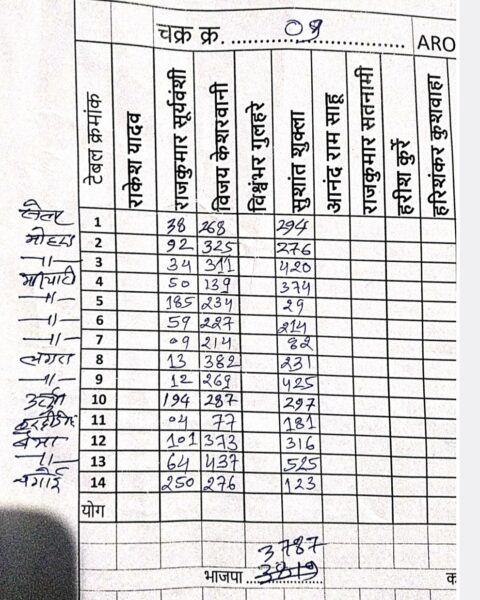 चक्र क्र. 09 ARO
टेबल क्रमांक राकेश यादव राजकुमार सूर्यवंशी विजय केशरवानी विश्वंभर गुलहरे सुशांत शुक्ला आनंद राम साहू राजकुमार सतनामी हरीश कुर्रे हरिशंकर कुशवाहा
1 38 268 294
2 92 325 276
-॥- 3 34 311 420
4 50 139 374
-॥- 5 185 234 29
-॥- 6 59 227 214
-॥- 7 09 214 82
8 13 382 231
-॥- 9 12 269 425
10 194 287 297
11 04 77 181
12 101 373 316
-॥- 13 64 437 525
14 250 276 123
योग
3787
भाजपा 3819